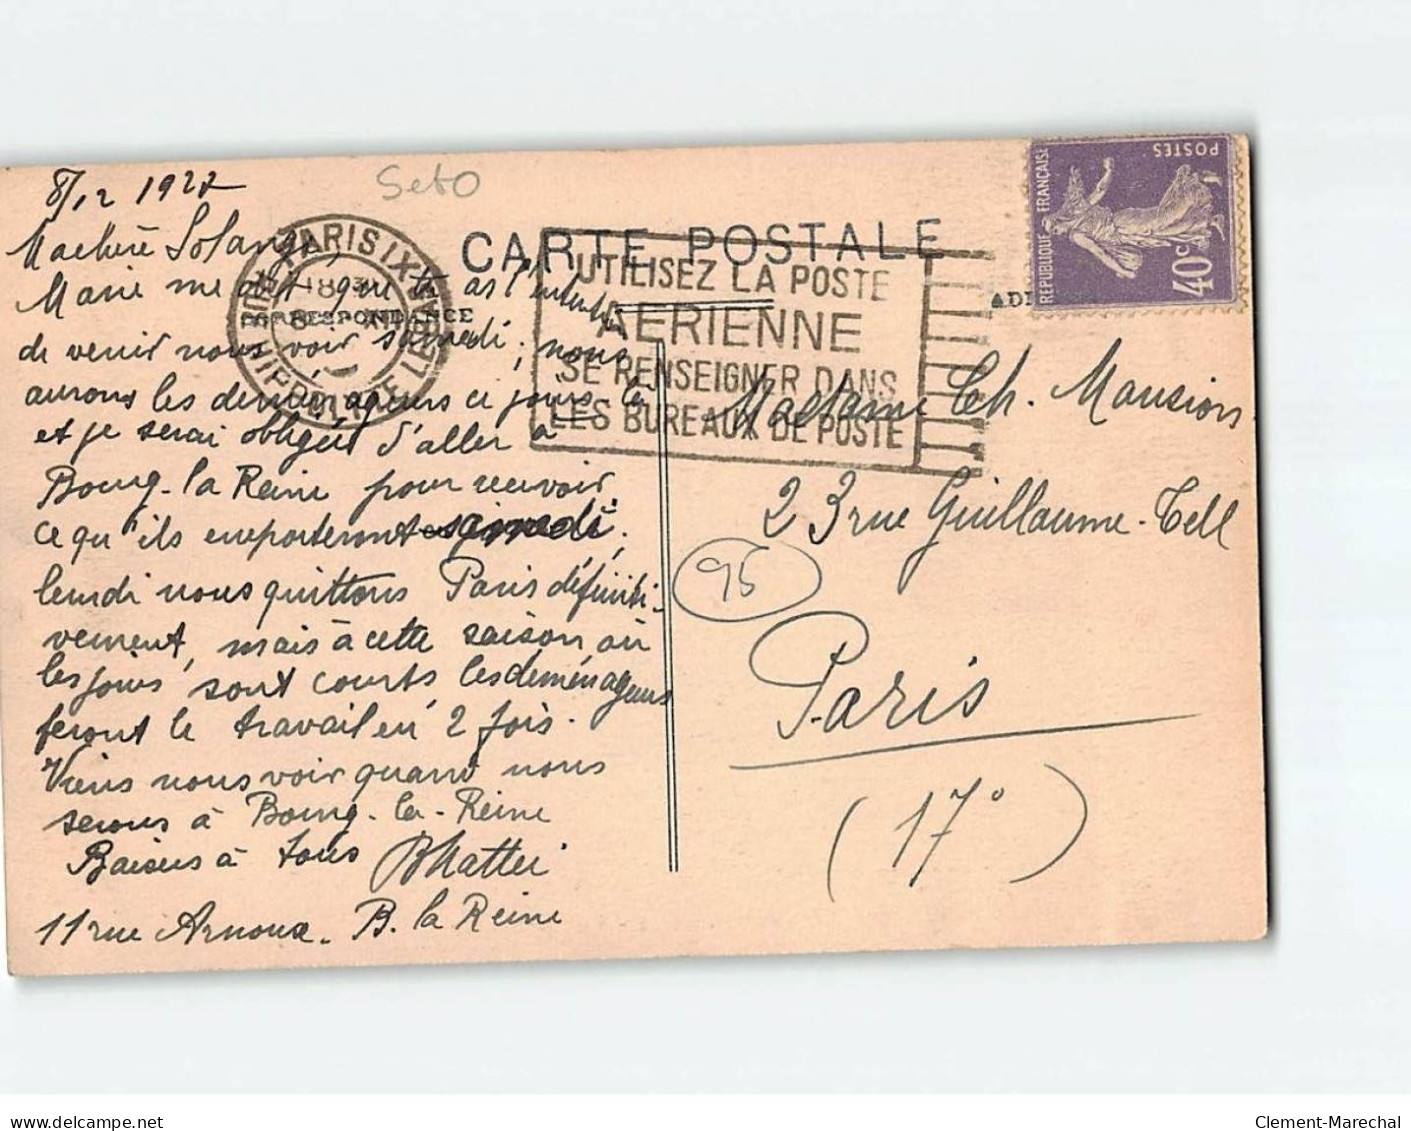 8/12 1927
Seto
Ma chère Solange,
Marie me dit que tu as l'intention
de venir nous voir samedi; nous
aurons les déménageurs ce jour là
et je serai obligée d'aller à
Bourg-la Reine pour recevoir
ce qu'ils emporteront samedi.
lundi nous quittons Paris définiti-
vement, mais à cette saison où
les jours sont courts les déménageurs
feront le travail en 2 fois.
Viens nous voir quand nous
serons à Bourg-la-Reine
Baisers à tous
11 rue Arnoux. B. la Reine
CARTE POSTALE
CORRESPONDANCE
PARIS IX
UTILISEZ LA POSTE
AERIENNE
SE RENSEIGNER DANS
LES BUREAUX DE POSTE
POSTES
REPUBLIQUE FRANÇAISE
40c
Madame Ch. Mansion
23 rue Guillaume-Tell
95
Paris
(17°)
www.delcampe.net
Clement-Marechal